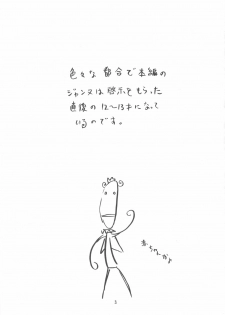 色々な都合で本編の
ジャンヌは啓示をもらった
直後の12〜13才になって
いるのです。
赤ちゃんかよ
3